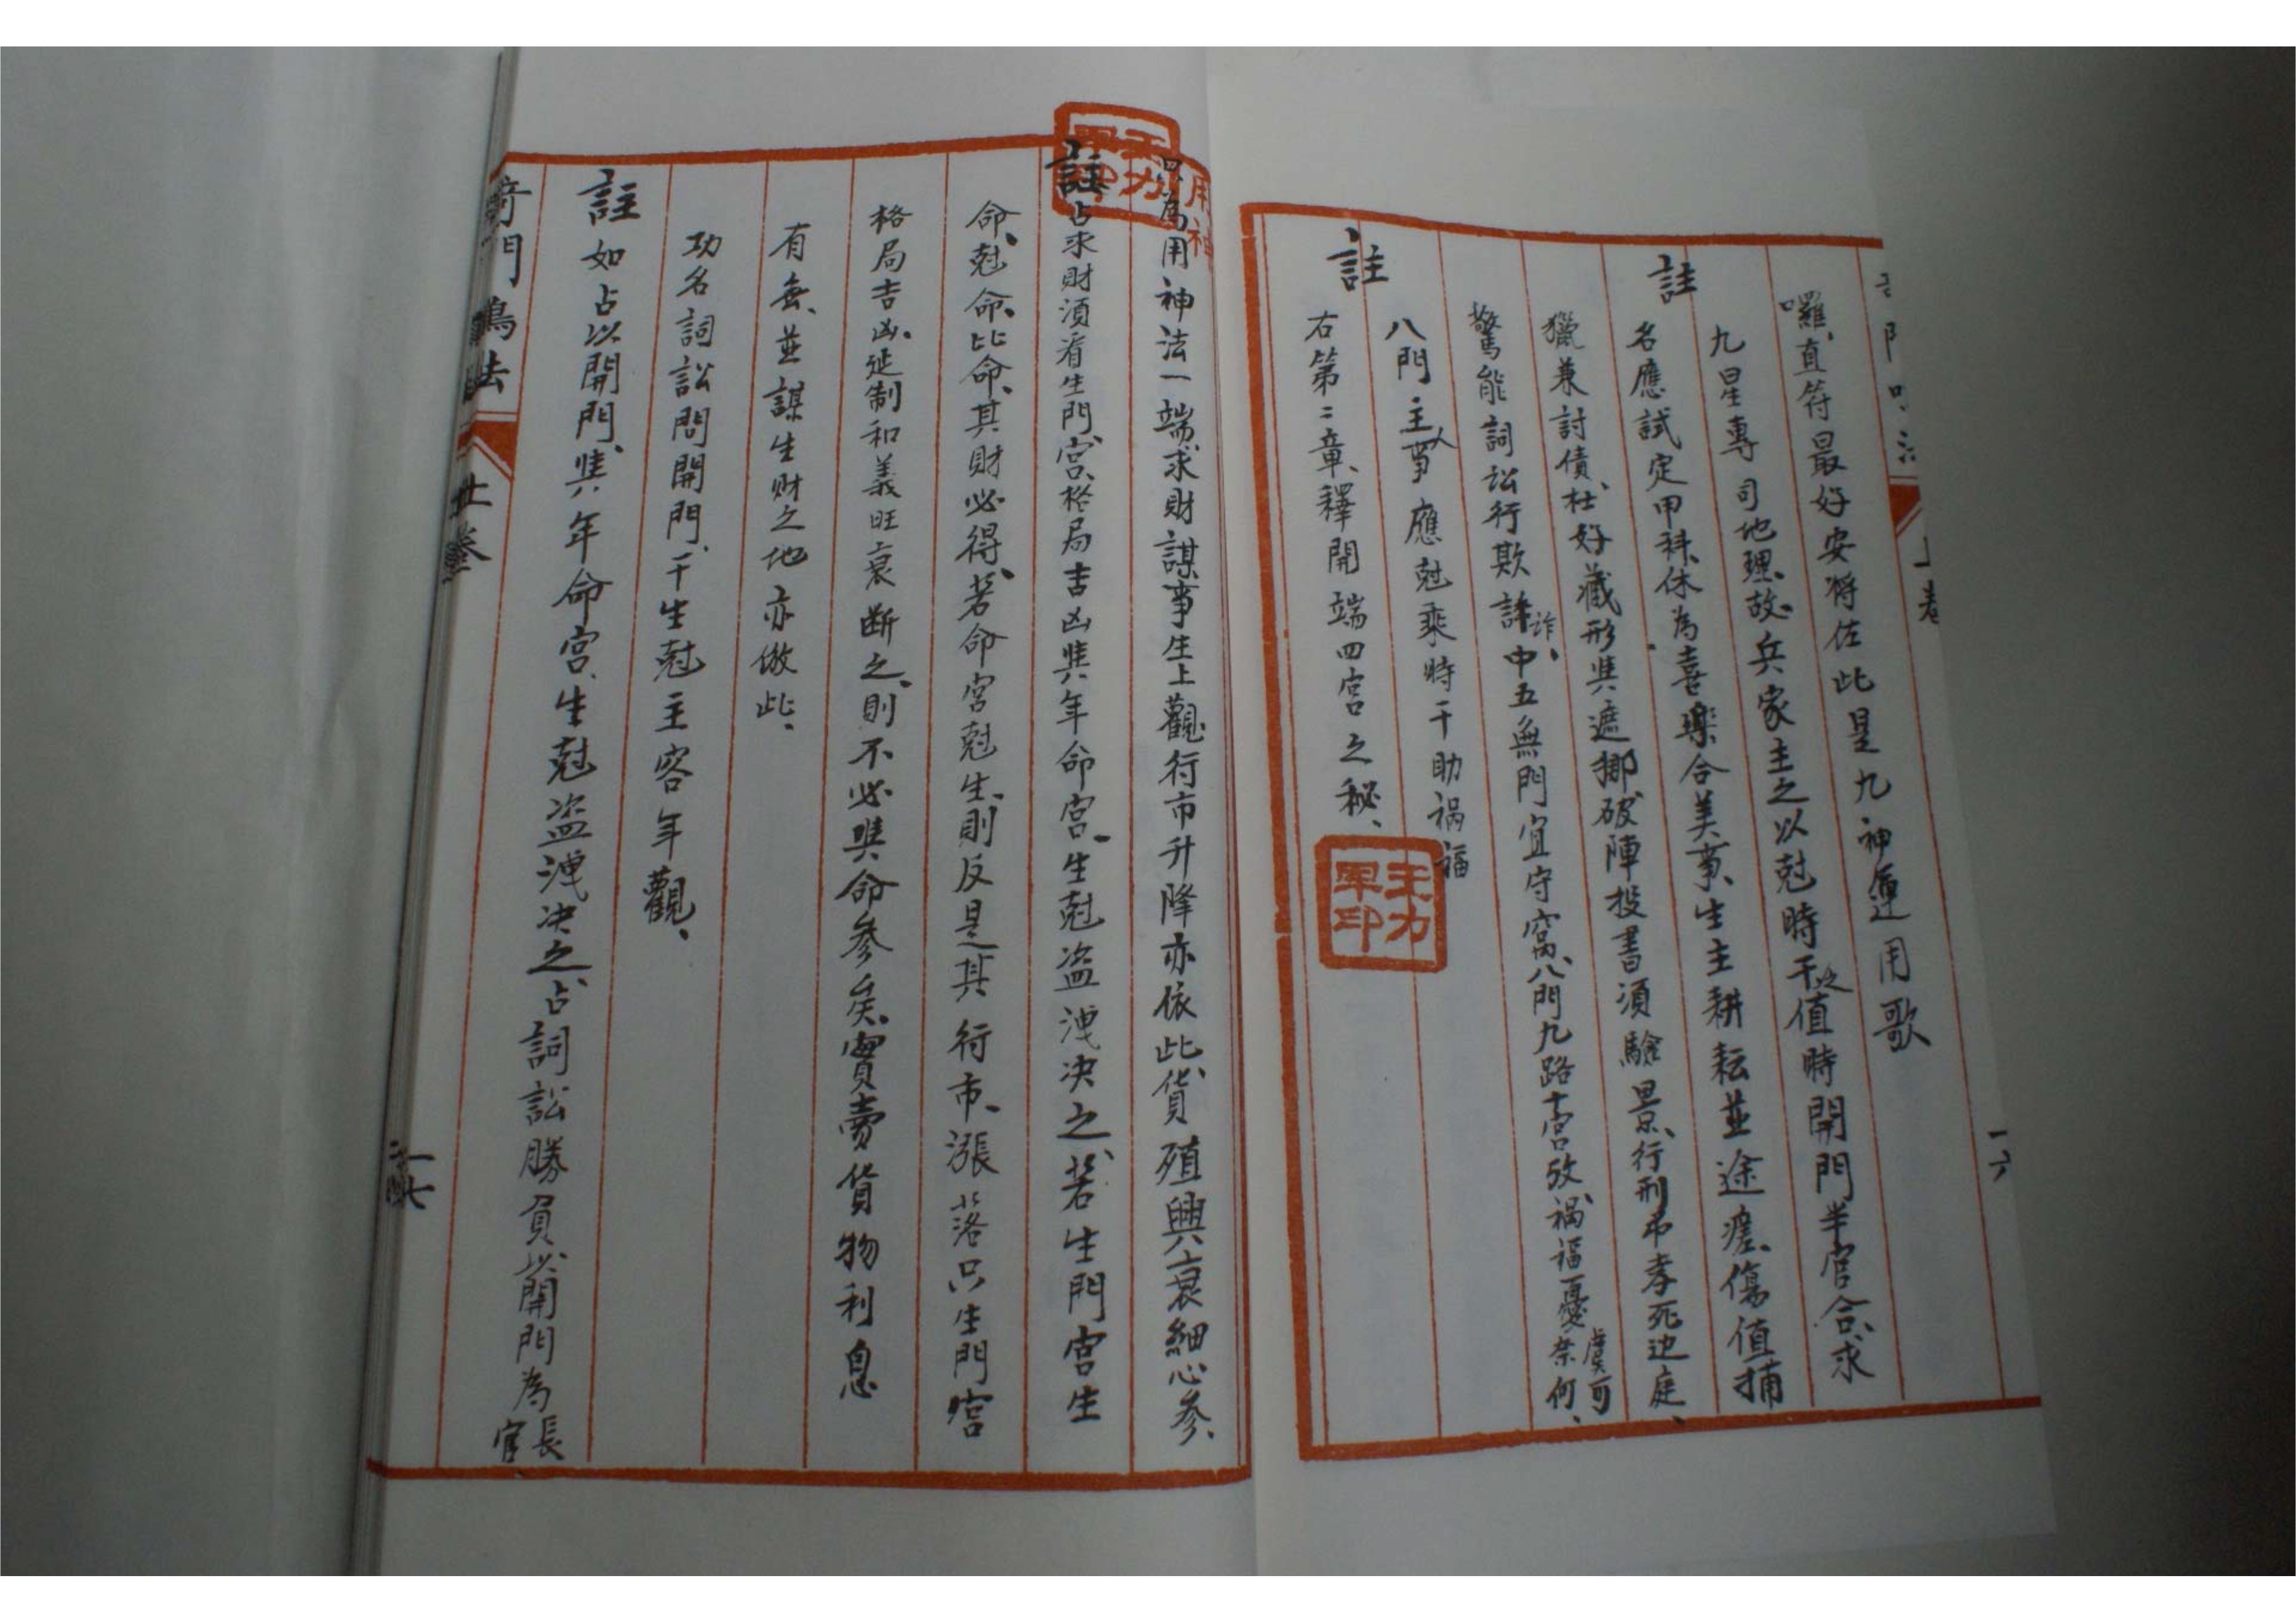 上卷
一六
囉、直符最好安将佐此是九神運用歌
註
九星專司地理、故兵家主之以尅時干之值時開門半官合、求
名應試定甲科、休為喜樂合美事、生主耕耘並途瘥、傷值捕
獵兼討債、杜好藏形與遮挪、破陣投書須驗景、行刑弔孝死边庭、
驚能詞訟行欺詐、中五無門宜守窩、八門九路十宮攷、禍福憂虞可奈何、
八門主人事應尅乘時干助禍福
註
右第二章、釋開端四宮之秘、
王力軍印
王力軍印
用神
是為用神法一端、求財謀事生上觀、行市升降亦依此、貨殖興衰細心参、
註占求財須看生門宮、格局吉凶與年命宮、生尅盗洩决之、若生門宮生
命、尅命、比命、其財必得、若命宮尅生、則反是其行市、漲落只生門宮
格局吉凶、延制和義旺衰断之、則不必與命参矣、實賣貨物利息
有無、並謀生财之地亦倣此、
功名詞訟問開門、干生尅主客年觀、
註如占以開門、與年命宮、生尅盗洩决之、占詞訟勝負、以開門為官長
奇門鳴法
上卷
一七